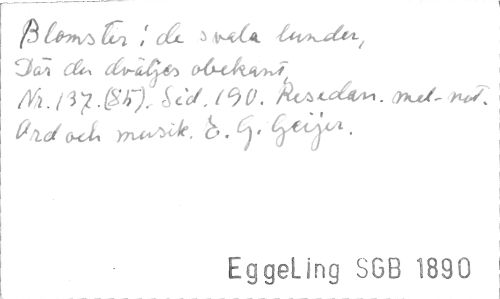 Blomster i de svala lunder,
Där du dväljes obekant,
Nr. 137. (85). Sid. 190. Resedan. mel-not.
Ord och musik. E. G. Geijer.
EggeLing SGB 1890